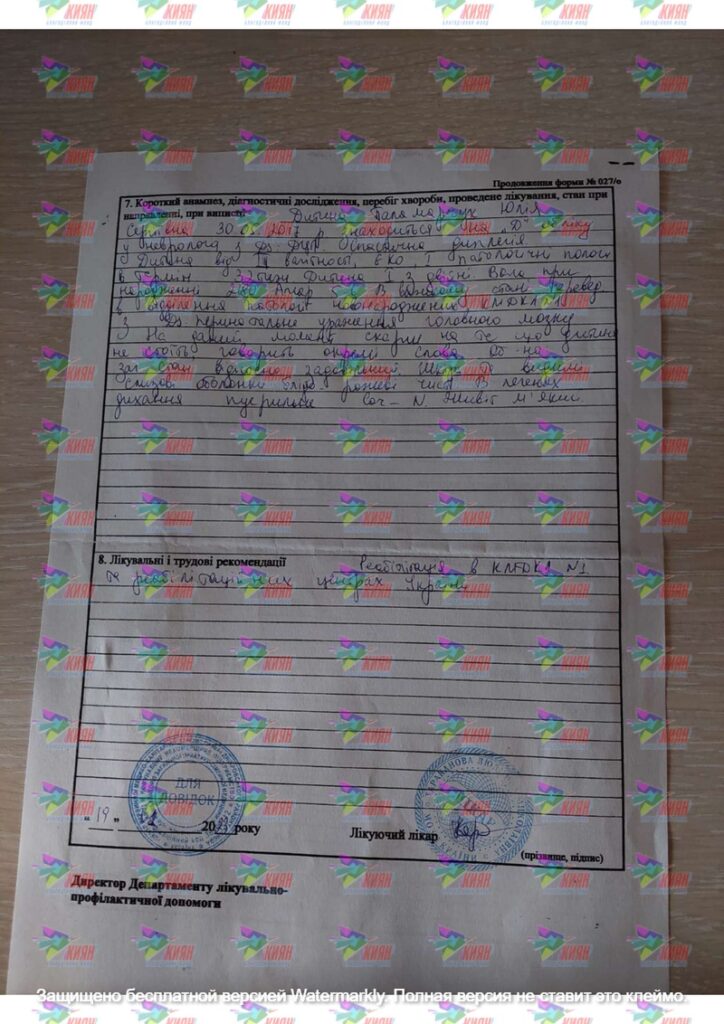 Продовження форми № 027/о
7. Короткий анамнез, діагностичні дослідження, перебіг хвороби, проведене лікування, стан при
направленні, при виписці Дитина Паламарчук Юлія
30.05.2017 р знаходиться на "Д" обліку
у невролога з Дз: ДЦП. Спастична диплегія.
Дитина від вагітності, ЕКО, І патологічних пологів
в термін 32 тижн Дитина І з двійні. Вага при
народженні Апгар В стані перевед.
в відділення патології новонароджених КМДКЛ №1
з Дз: перинатальне ураження головного мозку
На даний момент скарги на те що дитина
не стоїть, говорить окремі слова. Об-но
заг. стан відносно задовільний Шкіра та видимі
слизові оболонки блідо рожеві чисті В легенях
дихання пуерильне Сог - N Живіт м'який.
8. Лікувальні і трудові рекомендації Реабілітація в КМДКЛ №1
та реабілітаційних центрах України
ДЛЯ
ДОВІДОК
"19" 20 року
Лікуючий лікар
(прізвище, підпис)
Директор Департаменту лікувально-
профілактичної допомоги
КИЯН
БЛАГОДІЙНИЙ ФОНД
Защищено бесплатной версией Watermarkly. Полная версия не ставит это клеймо.